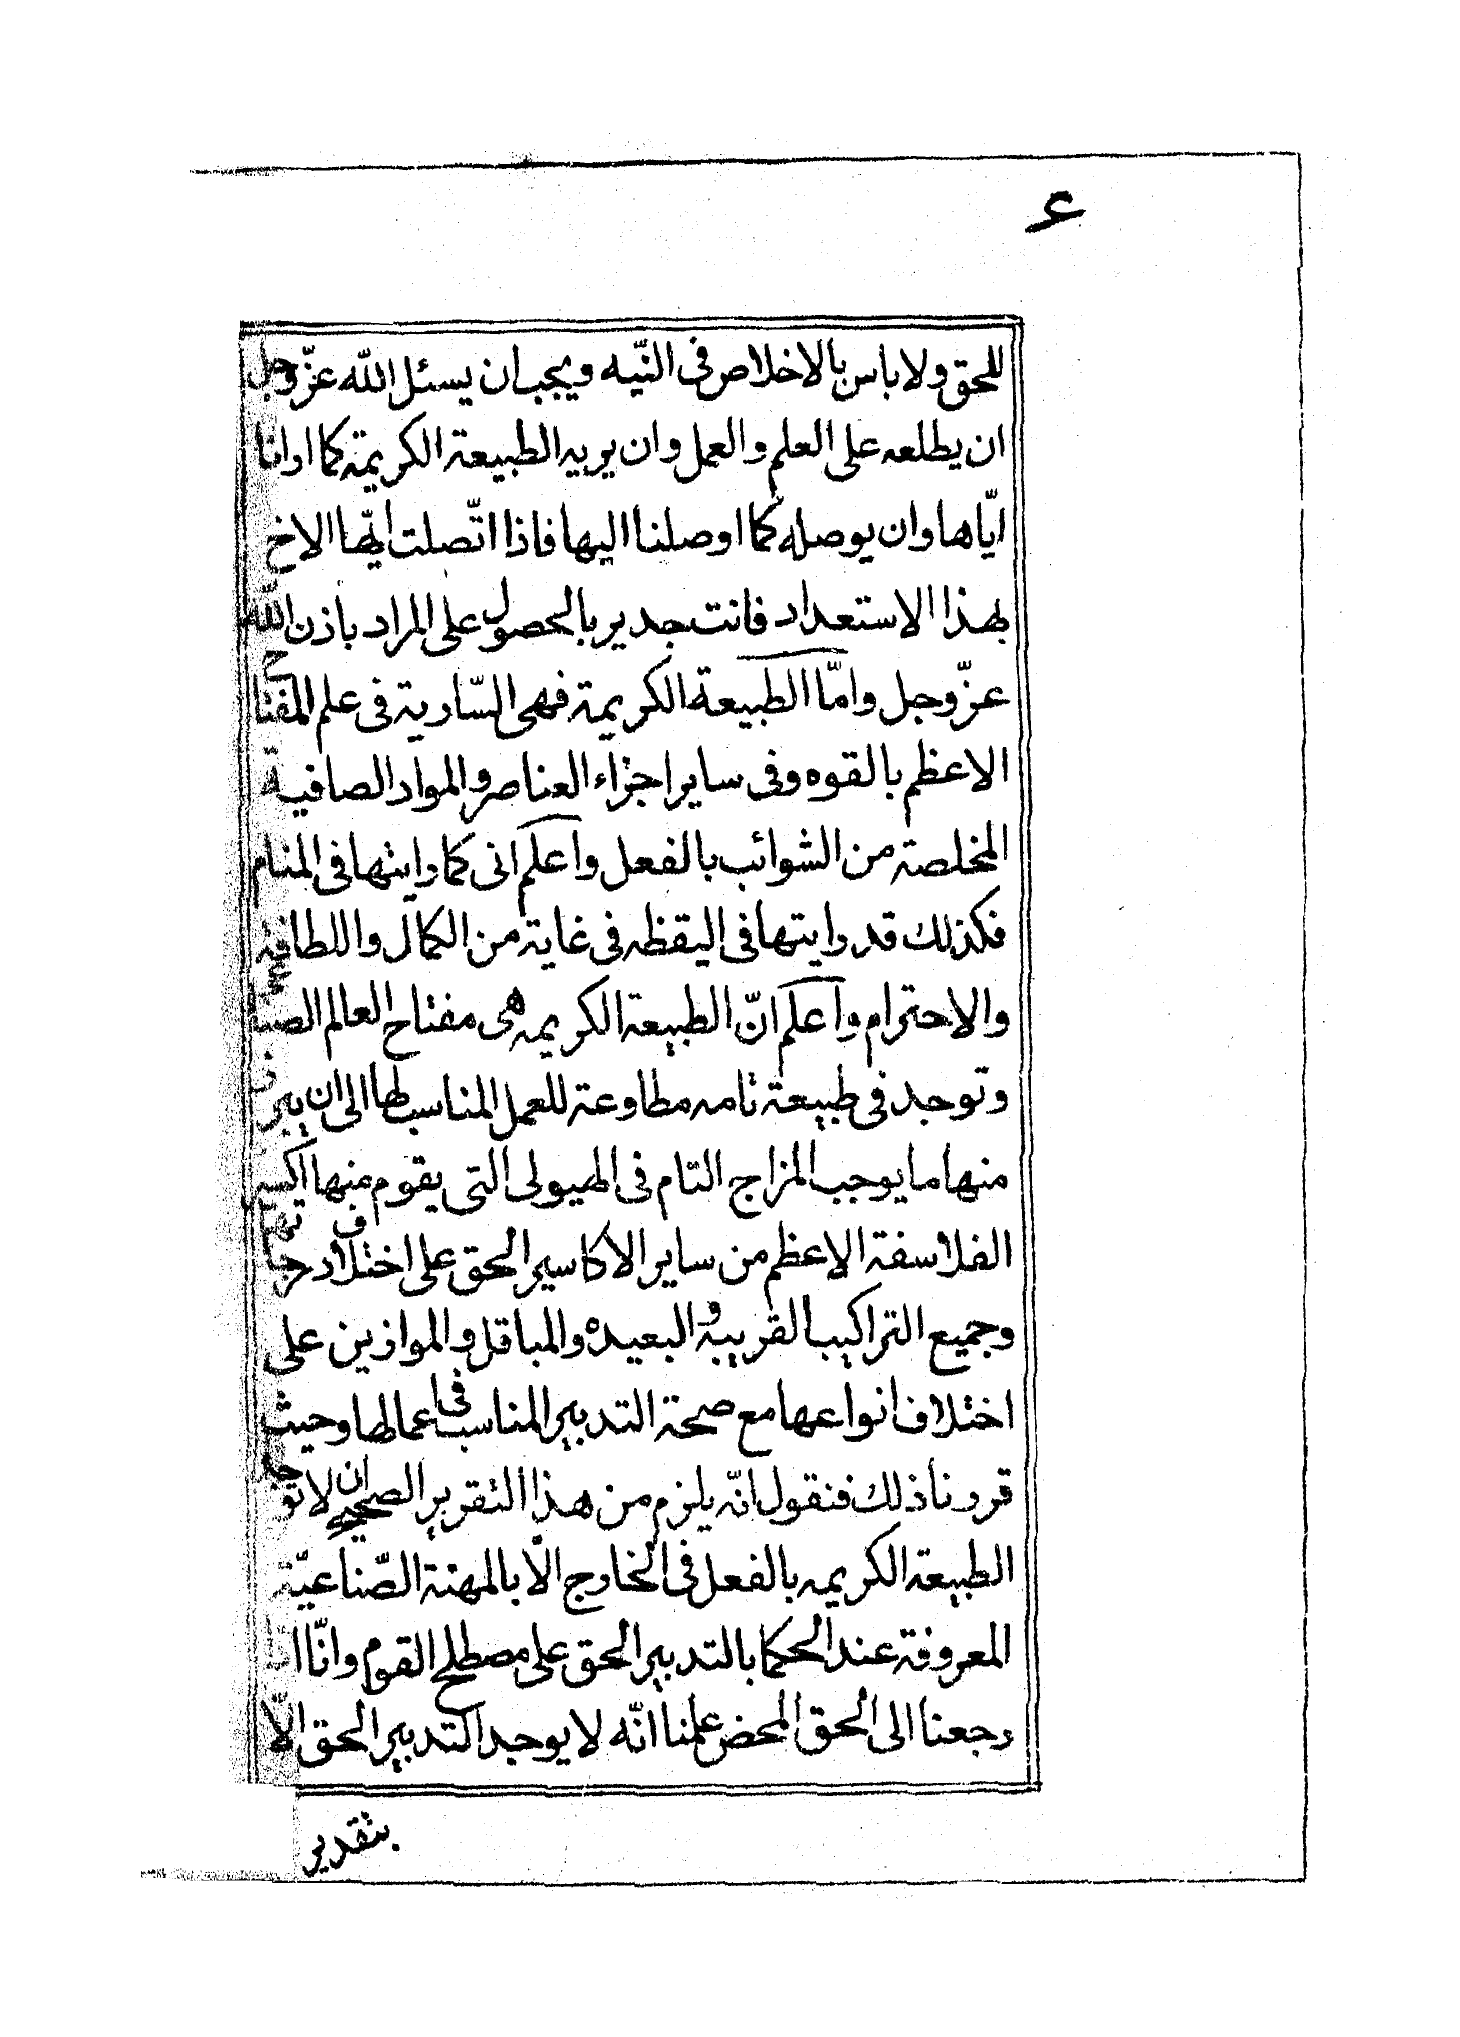 ع
للحق ولا باس بالاخلاص فى النّيه ويجب ان يسئل اللّه عزّ وجل
ان يطلعه على العلم والعمل وان يريه الطبيعة الكريمة كما ارانا
ايّاها وان يوصله كما اوصلنا اليها فاذا اتّصلت ايّها الاخ
بهذا الاستعداد فانت جدير بالحصول على المراد باذن اللّه
عزّ وجل وامّا الطبيعة الكريمة فهى السّارية فى علم المفتاح
الاعظم بالقوه وفى ساير اجزاء العناصر والمواد الصافيّة
المخلصة من الشوائب بالفعل واعلم انى كما رايتها فى المنام
فكذلك قد رايتها فى اليقظه فى غاية من الكمال واللطافة
والاحترام واعلم انّ الطبيعة الكريمه هى مفتاح العالم
وتوجد فى طبيعة تامه مطاوعة للعمل المناسب لها الى ان يبرز
منها ما يوجب المزاج التام فى الهيولى التى يقوم منها اكسير
الفلاسفة الاعظم من ساير الاكاسير الحق على اختلاف درجاتها
وجميع التراكيب القريبة والبعيده والمباقل والموازين على
اختلاف انواعها مع صحة التدبير المناسب فى اعمالها وحيث
قررنا ذلك فنقول انّه يلزم من هذا التقرير الصحيح ان لا توجد
الطبيعة الكريمه بالفعل فى الخارج الّا بالمهنة الصّناعيّة
المعروفة عند الحكما بالتدبير الحق على مصطلح القوم وانّا
رجعنا الى الحق المحض علمنا انّه لا يوجد التدبير الحق الّا
بتقدير